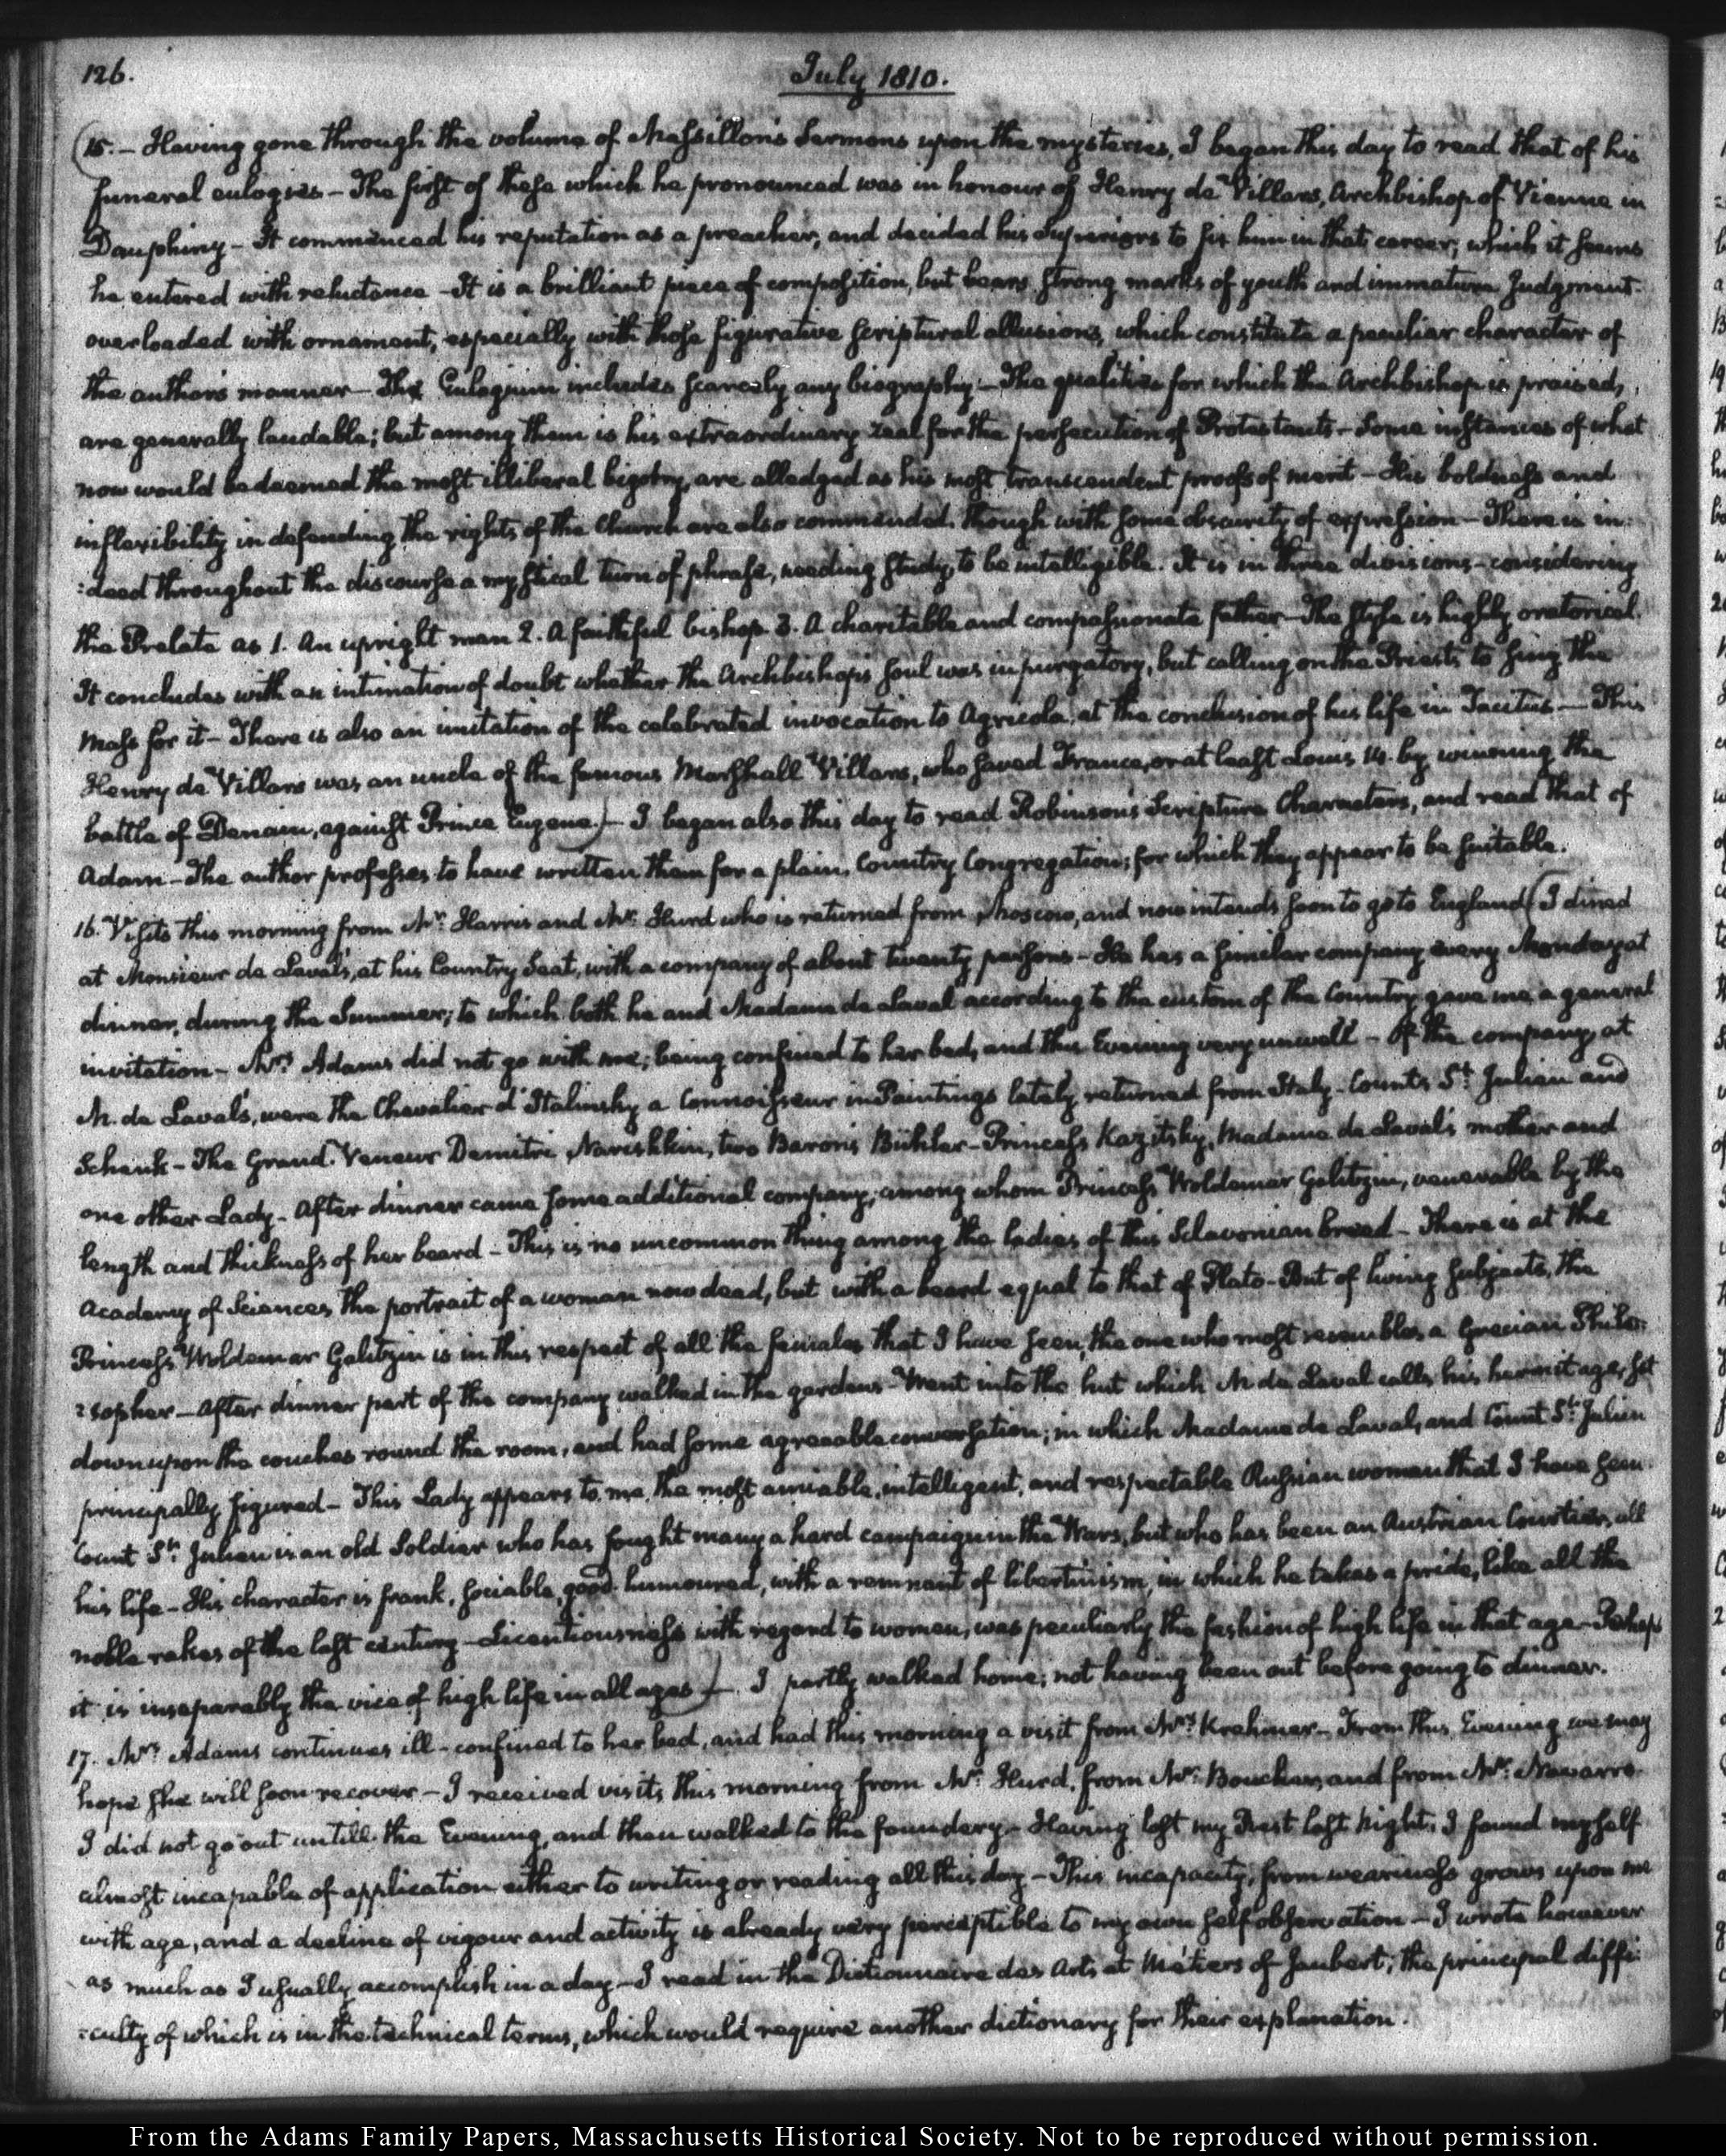 126.
July 1810.
(15. — Having gone through the volume of Massillon's Sermons upon the mysteries, I began this day to read that of his
funeral eulogies — The first of these which he pronounced was in honour of Henry de Villars, Archbishop of Vienne in
Dauphiny — It commenced his reputation as a preacher, and decided his Superiors to fix him in that career; which it seems
he entered with reluctance — It is a brilliant piece of composition, but bears strong marks of youth and immature Judgment.
overloaded with ornament, especially with those figurative Scriptural allusions, which constitute a peculiar character of
the author's manner — The Eulogium includes scarcely any biography — The qualities for which the Archbishop is praised,
are generally laudable; but among them is his extraordinary zeal for the persecution of Protestants — Some instances of what
now would be deemed the most illiberal bigotry, are alledged as his most transcendent proofs of merit — His boldness and
inflexibility in defending the rights of the Church are also commended. though with some obscurity of expression — There is in:
:deed throughout the discourse a mystical turn of phrase, needing study, to be intelligible. It is in three divisions — considering
the Prelate as 1. An upright man 2. A faithful bishop. 3. A charitable and compassionate father — The style is highly oratorical.
It concludes with an intimation of doubt whether the Archbishop's soul was in purgatory, but calling on the Priests to sing the
Mass for it — There is also an imitation of the celebrated invocation to Agricola, at the conclusion of his life in Tacitus — This
Henry de Villars was an uncle of the famous Marshall Villars, who saved France, or at least Louis 14. by winning the
battle of Denain, against Prince Eugene.) — I began also this day to read Robinson's Scripture Characters, and read that of
Adam — The author professes to have written them for a plain, Country Congregation; for which they appear to be suitable.
16. Visits this morning from Mr. Harris and Mr. Hurd who is returned from Moscow, and now intends soon to go to England (I dined
at Monsieur de Laval's, at his Country Seat, with a company of about twenty persons — He has a similar company every Monday at
dinner, during the Summer; to which both he and Madame de Laval according to the custom of the Country gave me a general
invitation — Mrs. Adams did not go with me; being confined to her bed, and this Evening very unwell — Of the company, at
M. de Laval's, were the Chevalier d'Italinsky a Connoisseur in Paintings lately returned from Italy — Counts St. Julien and
Schenk — The Grand Veneur Demitri Narishkin, two Barons Bühler — Princess Kazitsky, Madame de Laval's mother and
one other Lady — After dinner came some additional company; among whom Princess Woldemar Galitzin, venerable by the
length and thickness of her beard — This is no uncommon thing among the ladies of this Sclavonian breed — There is at the
Academy of Sciences, the portrait of a woman now dead, but with a beard equal to that of Plato — But of living subjects, the
Princess Woldemar Galitzin is in this respect of all the females that I have seen, the one who most resembles a Grecian Philo:
:sopher — After dinner part of the company walked in the gardens — Went into the hut which M. de Laval calls his hermitage, sat
down upon the couches round the room, and had some agreeable conversation; in which Madame de Laval, and Count St. Julien
principally figured — This Lady appears to me, the most amiable, intelligent, and respectable Russian woman that I have seen.
Count St. Julien is an old Soldier who has fought many a hard campaign in the Wars, but who has been an Austrian Courtier, all
his life — His character is frank, sociable, good humoured, with a remnant of libertinism, in which he takes a pride, like all the
noble rakes of the last century — Licentiousness with regard to women, was peculiarly the fashion of high life in that age — Perhaps
it is inseparably the vice of high life in all ages) — I partly walked home; not having been out before going to dinner.
17. Mrs. Adams continues ill — confined to her bed, and had this morning a visit from Mrs. Krehmer — From this Evening we may
hope she will soon recover — I received visits this morning from Mr. Hurd, from Mr. Boucher, and from Mr. Navarro.
I did not go out untill the Evening, and then walked to the foundery — Having lost my Rest last night, I found myself
almost incapable of application either to writing or reading all this day — This incapacity, from weariness grows upon me
with age, and a decline of vigour and activity is already very perceptible to my own self observation — I wrote however
as much as I usually accomplish in a day — I read in the Dictionnaire des Arts et Métiers of Jaubert; the principal diffi:
:culty of which is in the technical terms, which would require another dictionary for their explanation.
From the Adams Family Papers, Massachusetts Historical Society. Not to be reproduced without permission.